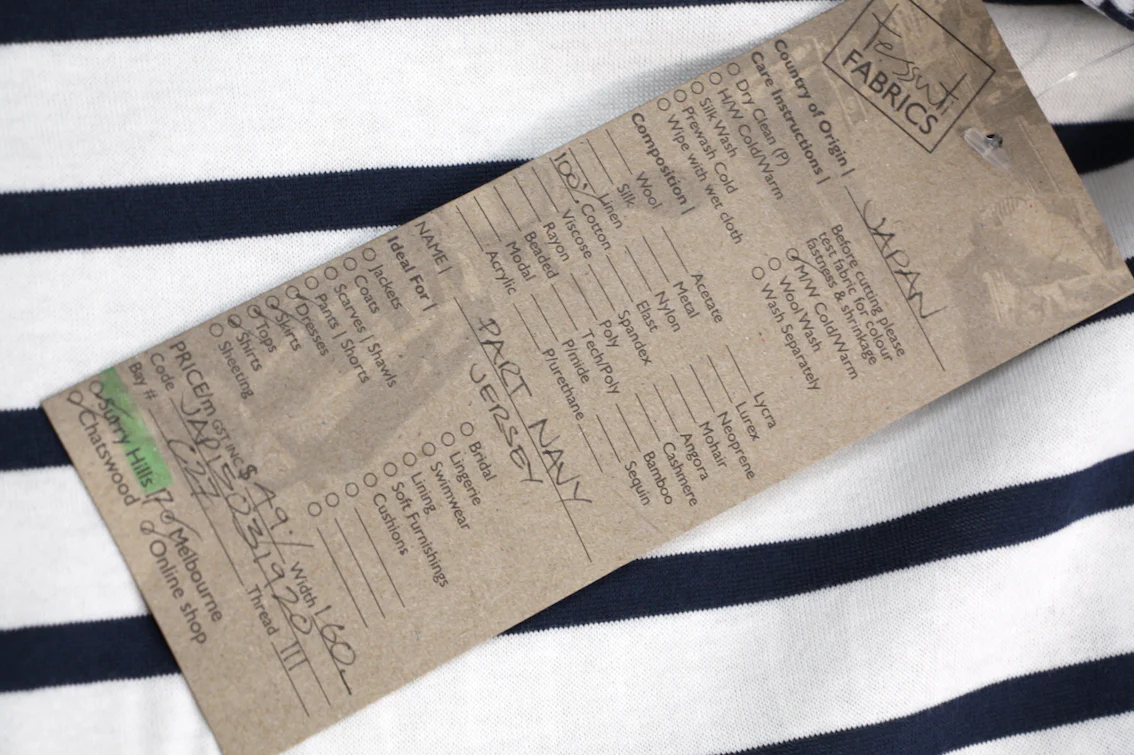 tessuti
FABRICS
Country of Origin | JAPAN
Care Instructions |
Dry Clean (P)
H/W Cold/Warm
Silk Wash
Prewash Cold
Wipe with wet cloth
Before cutting please
test fabric for colour
fastness & shrinkage
M/W Cold/Warm
Wool Wash
Wash Separately
Composition |
Wool
Silk
Linen
100% Cotton
Viscose
Rayon
Beaded
Modal
Acrylic
Acetate
Metal
Nylon
Elast
Spandex
Poly
Tech/Poly
P/mide
P/urethane
Lycra
Lurex
Neoprene
Mohair
Angora
Cashmere
Bamboo
Sequin
NAME | PART NAVY
JERSEY
Ideal For |
Jackets
Coats
Scarves | Shawls
Pants | Shorts
Dresses
Skirts
Tops
Shirts
Sheeting
Bridal
Lingerie
Swimwear
Lining
Soft Furnishings
Cushions
PRICE/m GST INC $ 49./ Width | 60
Code
Bay #
Thread III
Surry Hills
Chatswood
Melbourne
Online shop